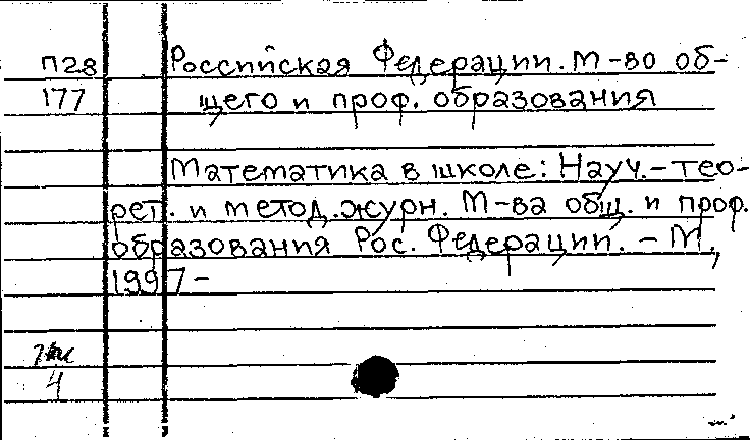 П28 Российская Федерации. М-во об-
177 щего и проф. образования
Математика в школе: Науч.-тео-
рет. и метод. журн. М-ва общ. и проф.
образования Рос. Федерации. - М.,
1997-
4